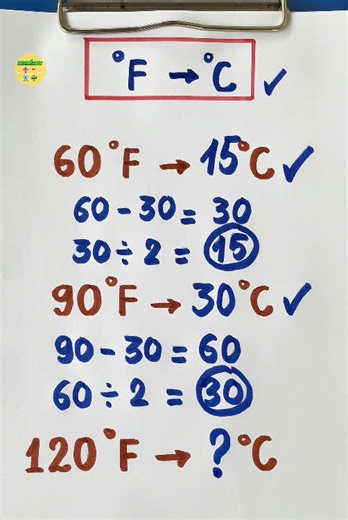 °F → °C ✓
60°F → 15°C ✓
60 - 30 = 30
30 ÷ 2 = 15
90°F → 30°C ✓
90 - 30 = 60
60 ÷ 2 = 30
120°F → ? °C